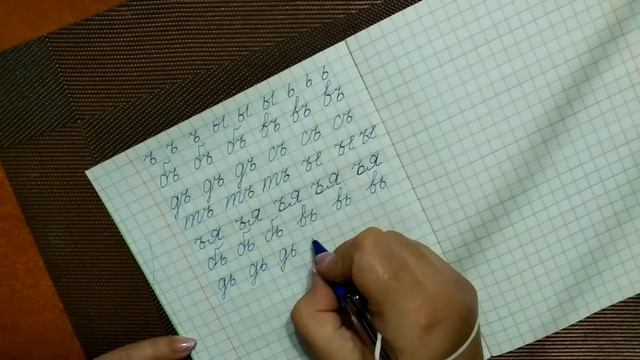 ъ ъ ъ ы ы ы ь ь ь
бъ бъ бъ въ въ въ
дъ дъ дъ съ съ съ
тъ тъ тъ ъе ъе ъе
ъя ъя ъя ъя ъя
бь бь бь вь вь вь
дь дь дь